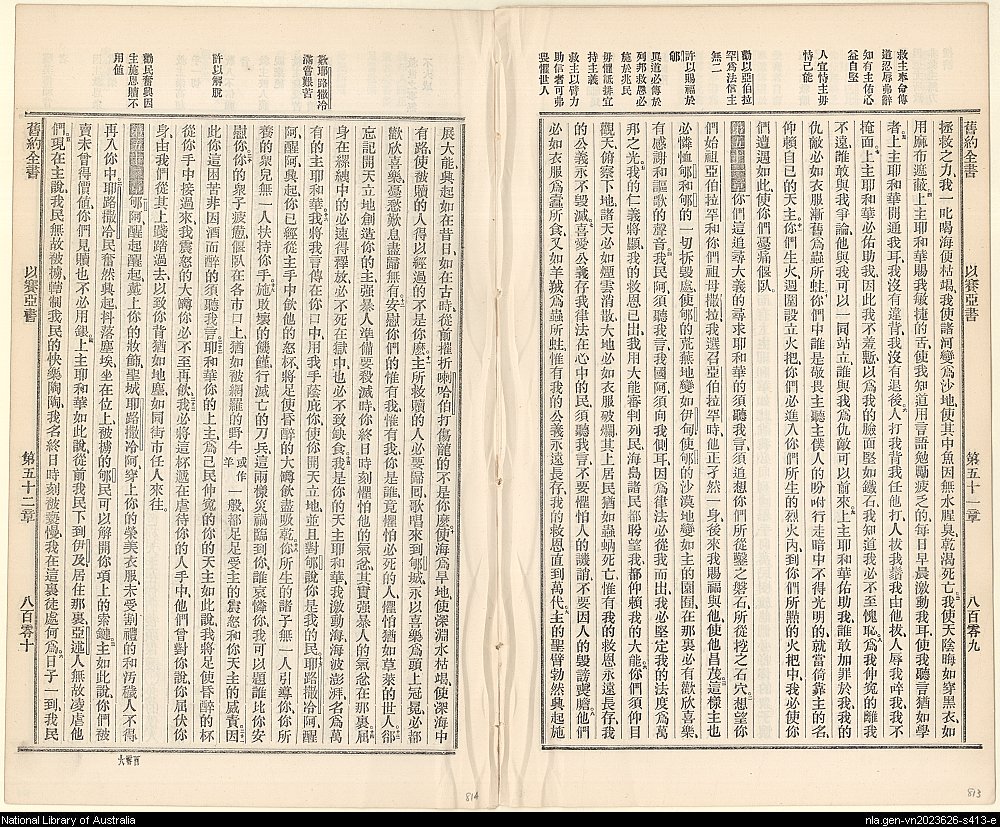 舊約全書　以賽亞書　第五十一章　八百零九
救主奉命傳
道忍辱弗辭
知有主佑心
益自堅
人宜恃主毋
恃己能
勸以亞伯拉
罕為法信主
無二
許以賜福於
郇
眞道必傳於
列邦救恩必
施於兆民
毋懼詆排宜
持主義
救主以臂力
助信者可弗
畏懼世人
拯救之力、我一叱喝海便枯竭、我使諸河變為沙地、使其中魚因無水腥臭、乾渴死亡、我使天陰晦如穿黑衣、如
用麻布遮蔽、上主耶和華賜我敏捷的舌、使我知道用言語勉勵疲乏的、每日早晨激動我耳、使我聽言猶如學
者、上主耶和華開通我耳、我沒有違背、我沒有退後、人打我背我任他打、人拔我鬚我由他拔、人辱我啐我、我不
掩面、上主耶和華必佑助我、因此我不羞慙、以為我的臉面堅如鐵石、我知道我必不至愧恥、為我伸寃的離我
不遠、誰敢與我爭論、他與我可以一同站立、誰與我為仇敵、可以前來、上主耶和華佑助我、誰敢加罪於我、我的
仇敵必如衣服漸舊為蟲所蛀、你們中誰是敬畏主聽主僕人的吩咐行走暗中不得光明的、就當倚靠主的名、
仰賴自己的天主、你們生火週圍設立火把、你們必進入你們所生的烈火內、到你們所點的火把中、我必使你
們遭遇如此、使你們憂痛偃臥、
第五十一章　你們這追尋大義的尋求耶和華的、須聽我言、須追想你們所從鑿之磐石、所從挖之石穴、想望你
們始祖亞伯拉罕和你們祖母撒拉、我選召亞伯拉罕時、他正孑然一身、後來我賜福與他、使他昌茂、這樣主也
必憐恤郇和郇的一切拆毀處、使郇的荒蕪地變如伊甸、使郇的沙漠地變如主的園囿、在那裏必有歡欣喜樂、
有感謝和謳歌的聲音、我民阿、須聽我言、我國阿、須向我側耳、因為律法必從我而出、我必堅定我的法度為萬
邦之光、我的仁義將顯、我的救恩已出、我用大能審判列民、海島諸民都盼望我、都仰賴我的大能、你們須仰目
觀天、俯察下地、諸天必如煙雲消散、大地必如衣服破爛、其上居民猶如蟲蚋死亡、惟有我的救恩永遠長存、我
的公義永不毀滅、喜愛公義存我律法在心中的民、須聽我言、不要懼怕人的譏誚、不要因人的毀謗喪膽、他們
必如衣服為蠹所食、又如羊羢為蟲所蛀、惟有我的公義永遠長存、我的救恩直到萬代、主的聖臂、勃然興起、施
舊約全書　以賽亞書　第五十二章　八百零十
歎耶路撒冷
滿嘗艱苦
許以解脫
勸民奮興因
主施恩贖不
用值
展大能、興起如在昔日、如在古時、從前摧折喇哈伯打傷龍的不是你麽、使海為旱地、使深淵水枯竭、使深海中
有路使被贖的人得以經過的不是你麽、主所救贖的人必要歸囘、歌唱來到郇城、永以喜樂為頭上冠冕、必都
歡欣喜樂、憂愁歎息、盡歸無有、安慰你們的惟有我、惟有我、你是誰、竟懼怕必死的人、懼怕猶如草萊的世人、郤
忘記開天立地創造你的主、强暴人準備要殺滅時、你終日時刻懼怕他的氣忿、其實强暴人的氣忿在那裏、屈
身在縲絏中的必速得釋放、必不死在獄中、也必不致缺食、我是你的天主耶和華、我激動海、海波澎湃、名為萬
有的主耶和華、我將我言傳在你口中、用我手蔭庇你、使你開天立地、並且對郇說、你是我的民、耶路撒冷阿、醒
阿、醒阿、興起、你已經從主手中飲他的怒杯、將足使昏醉的大罇飲盡吸乾、你所生的諸子、無一人引導你、你所
養的衆兒、無一人扶持你手、施敗壞的饑饉、行滅亡的刀兵、這兩樣災禍臨到你、誰哀憐你、我可以題誰比你安
慰你、你的衆子疲憊偃臥在各市口上、猶如被網羅的野牛或作羊一般、都足足受主的震怒和你天主的威責、因
此你這困苦非因酒而醉的、須聽我言、耶和華你的上主、為己民伸寃的你的天主如此說、我將足使昏醉的杯
從你手中接過來、我震怒的大罇你必不至再飲、我必將這杯遞在虐待你的人手中、他們曾對你說、你屈伏你
身、由我們從其上踐踏過去、以致你背猶如地塵、如同街市任人來往、
第五十二章　郇阿、醒起、醒起、奮有力、戴上你的妝飾、聖城耶路撒冷阿、穿上你的榮美衣服、未受割禮的和污穢人不得
再入你中、耶路撒冷民奮然興起、抖落塵埃、坐在位上、被擄的郇民、可以解開你項上的索鏈、主如此說、你們被
賣未曾得價值、你們見贖也不必用銀、上主耶和華如此說、從前我民下到伊及居住那裏、亞述人無故凌虐他
們、現在主說、我民無故被擄、轄制我民的快樂陶陶、我名終日時刻被褻慢、我在這裏徒處何為、日子一到、我民
814
813
National Library of Australia
nla.gen-vn2023626-s413-e